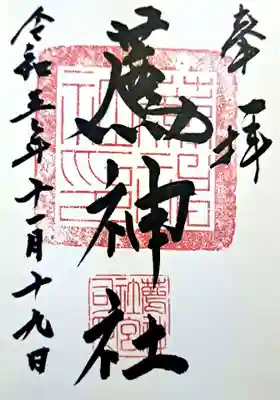 奉拝
薦神社
令和五年十一月十九日